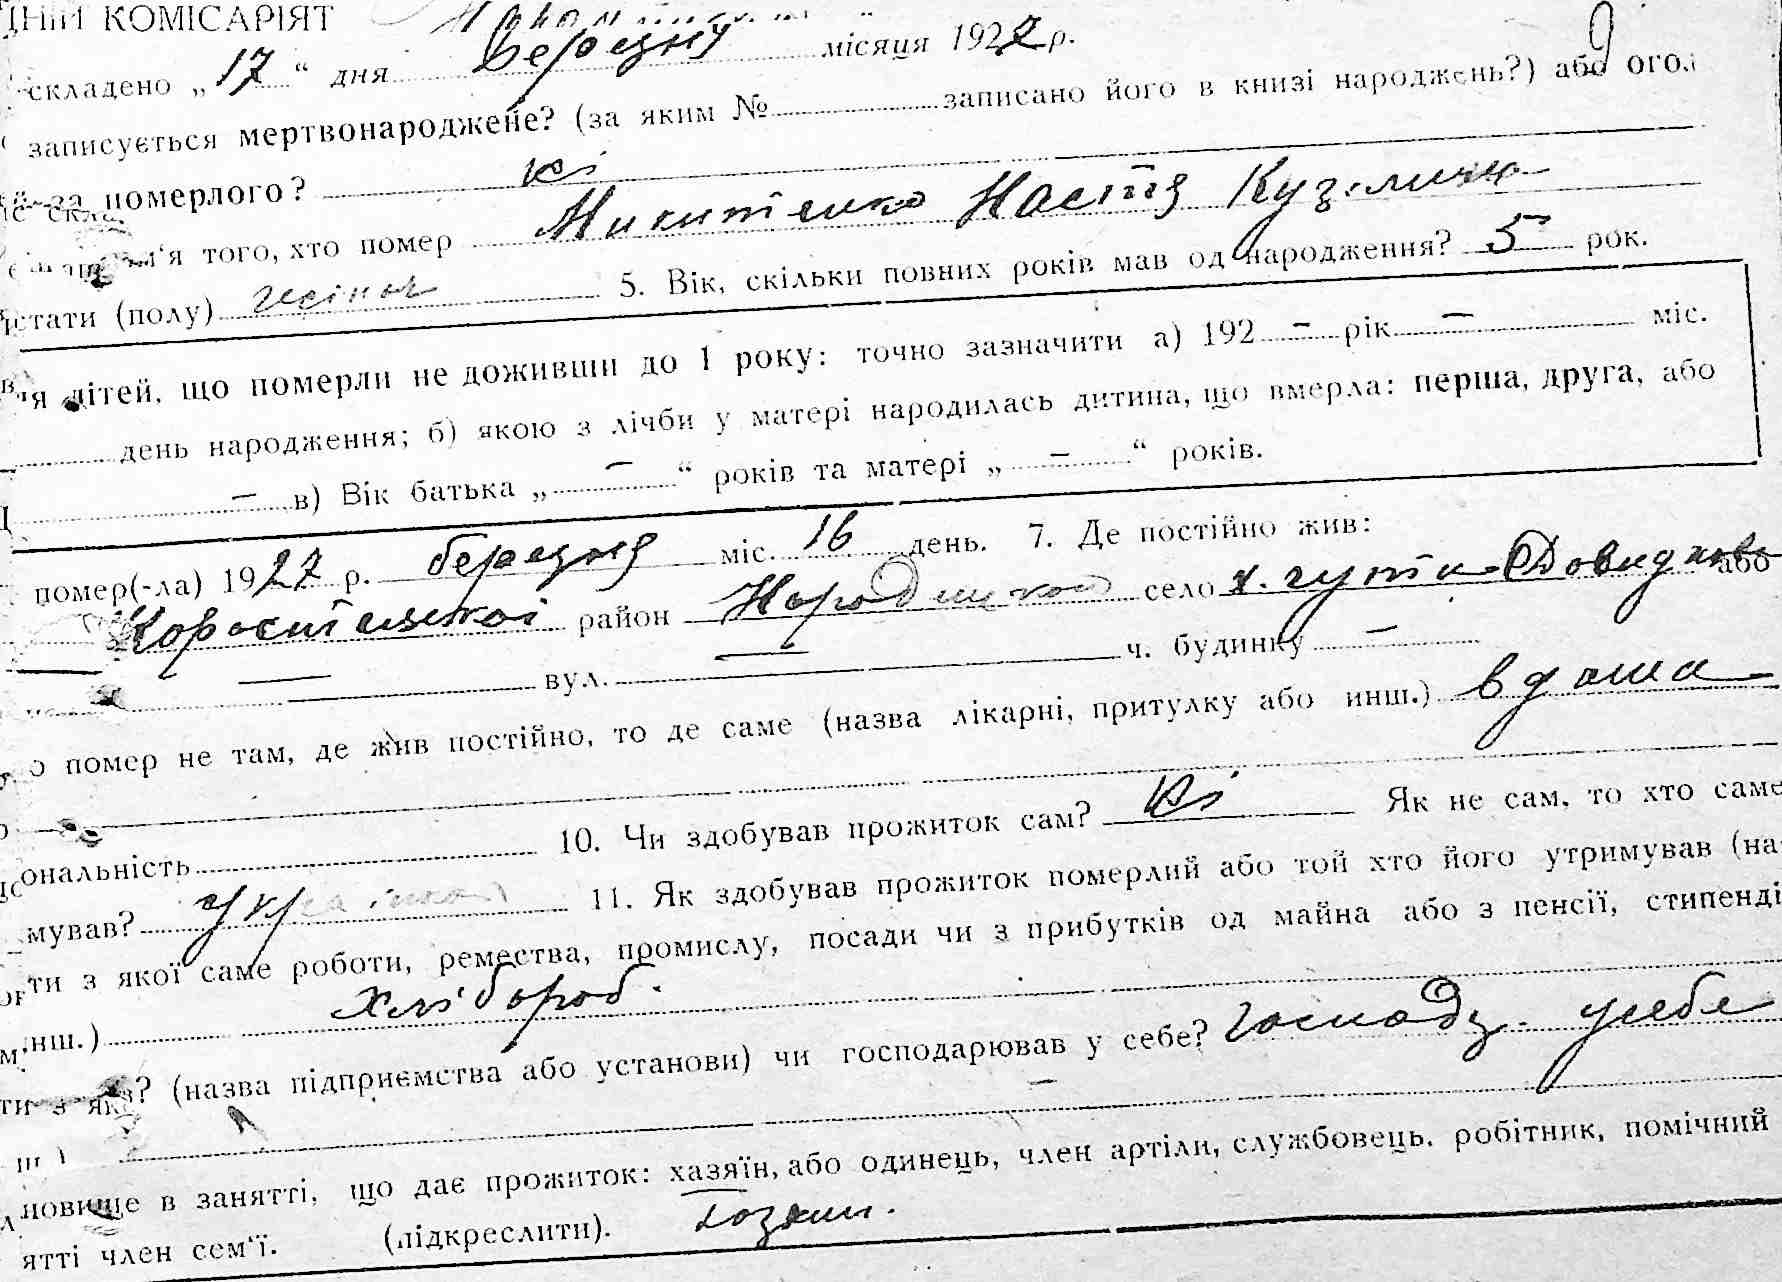 КОМІСАРІЯТ
складено „17“ дня березня місяця 1927 р.
записується мертвонароджене? (за яким № записано його в книзі народжень?) або огол
за померлого? ні
того, хто помер Микитенко Настя Кузьмична
(полу) жіноч 5. Вік, скільки повних років мав од народження? 5 рок.
дітей, що померли не доживши до 1 року: точно зазначити а) 192 – рік – міс.
день народження; б) якою з лічби у матері народилась дитина, що вмерла: перша, друга, або
– в) Вік батька „ – “ років та матері „ – “ років.
помер(-ла) 1927 р. березня міс. 16 день. 7. Де постійно жив:
Коростенської район Народицькой село х. гута або
— вул. — ч. будинку –
помер не там, де жив постійно, то де саме (назва лікарні, притулку або инш.) вдома
10. Чи здобував прожиток сам? ні Як не сам, то хто саме
мував? 11. Як здобував прожиток померлий або той хто його утримував (на-
ти з якої саме роботи, ремества, промислу, посади чи з прибутків од майна або з пенсії, стипенді
инш.) хлібороб.
(назва підприємства або установи) чи господарював у себе? господ. у себе
–
новище в занятті, що дає прожиток: хазяїн, або одинець, член артіли, службовець, робітник, помічний
ятті член сем‘ї. (підкреслити). хозяин.